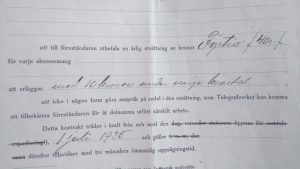 att till föreståndaren utbetala en årlig ersättning av kronor Fyrtio /40:-/
för varje abonnemang
att erlägges med 10 kronor under varje kvartal
att icke i någon form göra anspråk på andel i den ersättning, som Telegrafverket kan komma
att tillerkänna föreståndaren för åt densamma utfört särskilt arbete.
Detta kontrakt träder i kraft från och med den dag, varunder stationen öppnas för
expediering, 1 juli 1936 och gäller
därefter tillsvidare med tre månaders ömsesidig uppsägningstid.